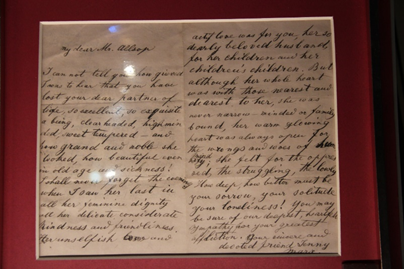 My dear Mr. Alleop
I can not tell you how grieved
I was to hear that you have
lost your dear partner of
life. So excellent, so exquisite
a being, clearheaded high mind
did, sweet tempered — and
how grand and noble she
looked, how beautiful even
in old age & sickness!
I shall never forget the
when I saw her last in
all her feminine dignity
all her delicate considerate
kindness and friendliness.
Her unselfish love and
love was for you, her so
dearly beloved husband
for her children and her
children's children. But
although her whole heart
was with those nearest and
dearest to her, she was
never narrow-minded or family
bound, her warm glowing
heart was always open for
the wrongs and woes of
she felt for the oppres
sed, the struggling, the lonely
How deep, how bitter must be
your sorrow, your solitude
your loneliness! You may
be sure of our deepest, heartfelt
sympathy
Your sincere and
devoted friend Jenny
Marx